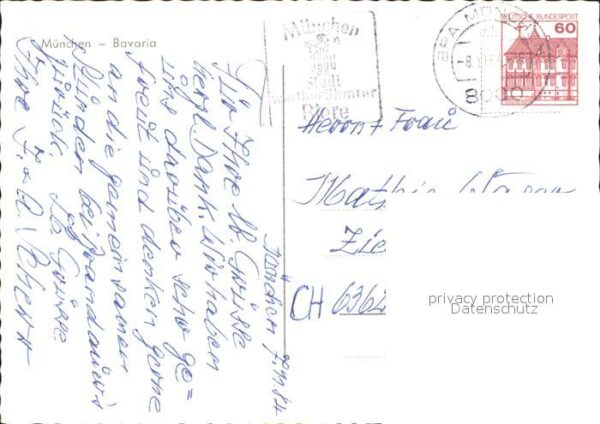 München - Bavaria
München
Stadt
weltberühmter
Biere
BPA MÜN
8000
DEUTSCHE BUNDESPOST
60
München, 7.11.84
Für Ihre lb. Grüsse
herzl. Dank. Wir haben
uns darüber sehr ge-
freut und denken gerne
an die gemeinsamen
Stunden bei
zurück. Lb. Grüsse
Ihre
Herrn + Frau
CH 6362
privacy protection
Datenschutz